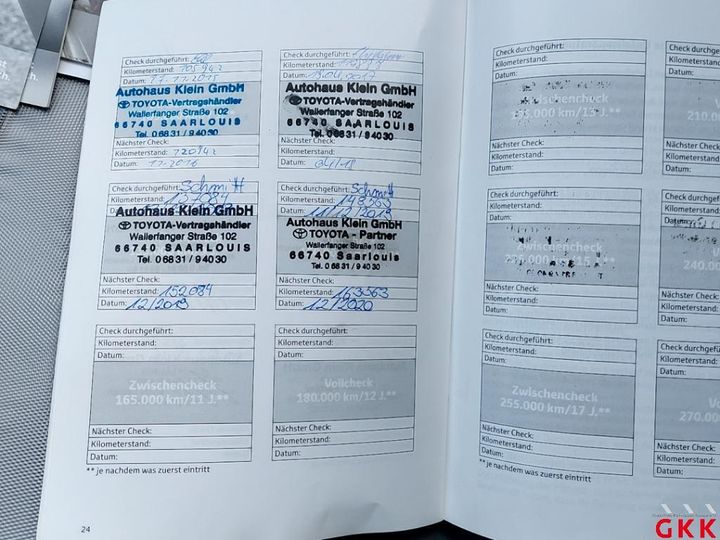 Check durchgeführt:
Kilometerstand: 105942
Datum: 17.11.2015
Autohaus Klein GmbH
TOYOTA-Vertragshändler
Wallerfanger Straße 102
66740 SAARLOUIS
Tel. 0 68 31 / 9 40 30
Nächster Check:
Kilometerstand: 120942
Datum: 11.2016
Check durchgeführt:
Kilometerstand:
Datum: 19.04.2017
Autohaus Klein GmbH
TOYOTA-Vertragshändler
Wallerfanger Straße 102
66740 SAARLOUIS
Tel. 0 68 31 / 9 40 30
Nächster Check:
Kilometerstand:
Datum: 04/18
Check durchgeführt: Schmitt
Kilometerstand: 137084
Autohaus Klein GmbH
TOYOTA-Vertragshändler
Wallerfanger Straße 102
66740 SAARLOUIS
Tel. 0 68 31 / 9 40 30
Nächster Check:
Kilometerstand: 152084
Datum: 12/2019
Check durchgeführt: Schmitt
Kilometerstand: 148563
Datum: 11/12/2019
Autohaus Klein GmbH
TOYOTA - Partner
Wallerfanger Straße 102
66740 Saarlouis
Tel. 0 68 31 / 9 40 30
Nächster Check:
Kilometerstand: 163563
Datum: 12/2020
Check durchgeführt:
Kilometerstand:
Datum:
Zwischencheck
165.000 km/11 J.**
Nächster Check:
Kilometerstand:
Datum:
Check durchgeführt:
Kilometerstand:
Datum:
Vollcheck
180.000 km/12 J.**
Nächster Check:
Kilometerstand:
Datum:
** je nachdem was zuerst eintritt
24
Check durchgeführt:
Kilometerstand:
Datum:
Zwischencheck
Nächster Check:
Kilometerstand:
Datum:
Check durchgeführt:
Kilometerstand:
Datum:
Zwischencheck
Nächster Check:
Kilometerstand:
Datum:
Check durchgeführt:
Kilometerstand:
Datum:
Zwischencheck
255.000 km/17 J.**
Nächster Check:
Kilometerstand:
Datum:
** je nachdem was zuerst eintritt
Check
Kilome
Datum:
210.0
Nächs
Kilom
Datum
Check
Kilom
Datum
240.00
Nächs
Kilom
Datum
Check
Kilom
Datum
270.00
Nächs
Kilom
Datum
GKK